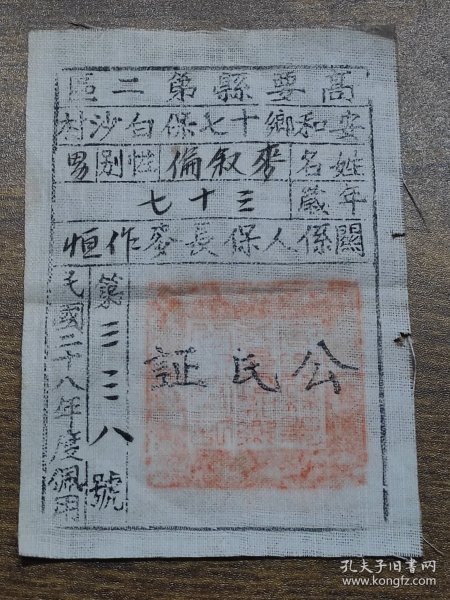 高要縣第二區
安和鄉十七保白沙村
姓名 麥叙倫 性别 男
年歲 三十七
關係人保長麥作恒
公民証
第三三八號
民國二十八年度佩用
孔夫子旧书网
www.kongfz.com